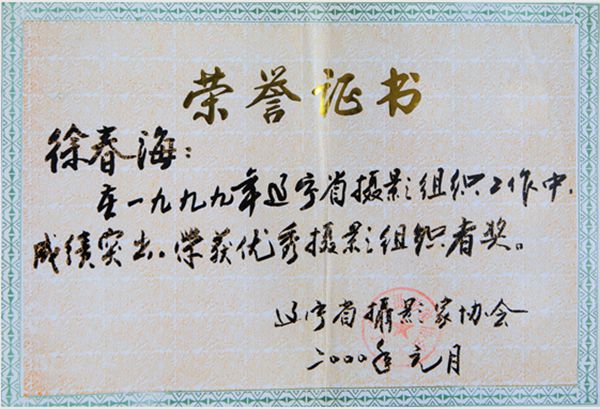 荣誉证书
徐春海:
在一九九九年辽宁省摄影组织工作中,
成绩突出。荣获优秀摄影组织者奖。
辽宁省攝影家协会
二000年元月